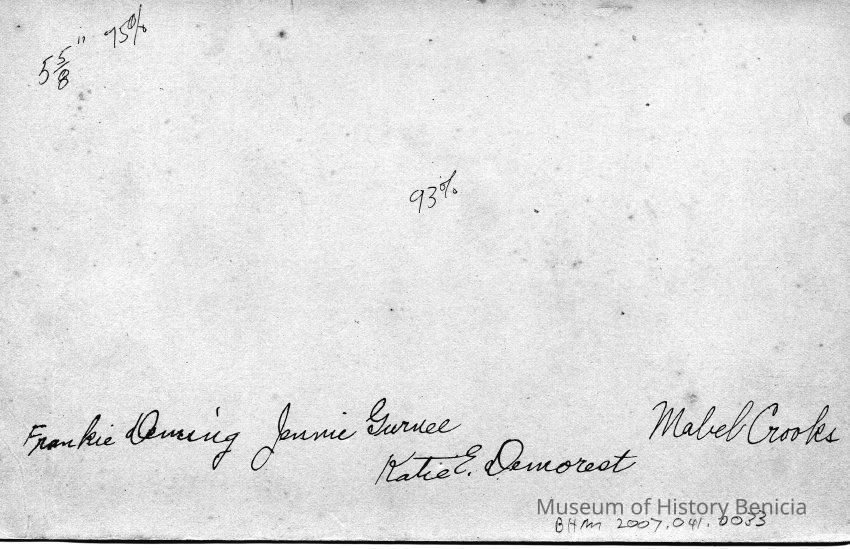 5 5/8" 95%
93%
Frankie Deming Jennie Gurnee Mabel Crooks
Katie E. Demorest
Museum of History Benicia
BHM 2007.041.0033